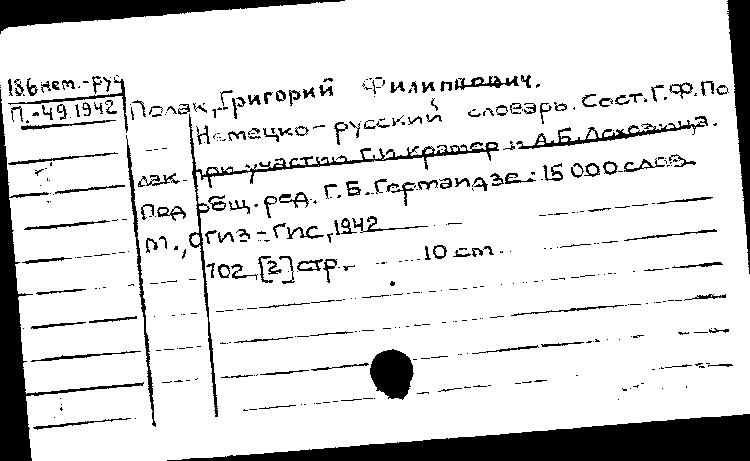 186 нем.-рус
П.-49.1942
Полак, Григорий Филиппович.
Немецко-русский словарь. Сост. Г.Ф. По
лак при участии Г.И. Крамер и А.Б. Лоховица.
Под общ. ред. Г.Б. : 15 000 слов.
м., ОГИЗ-ГИС, 1942
702, [2] стр. 10 cm.